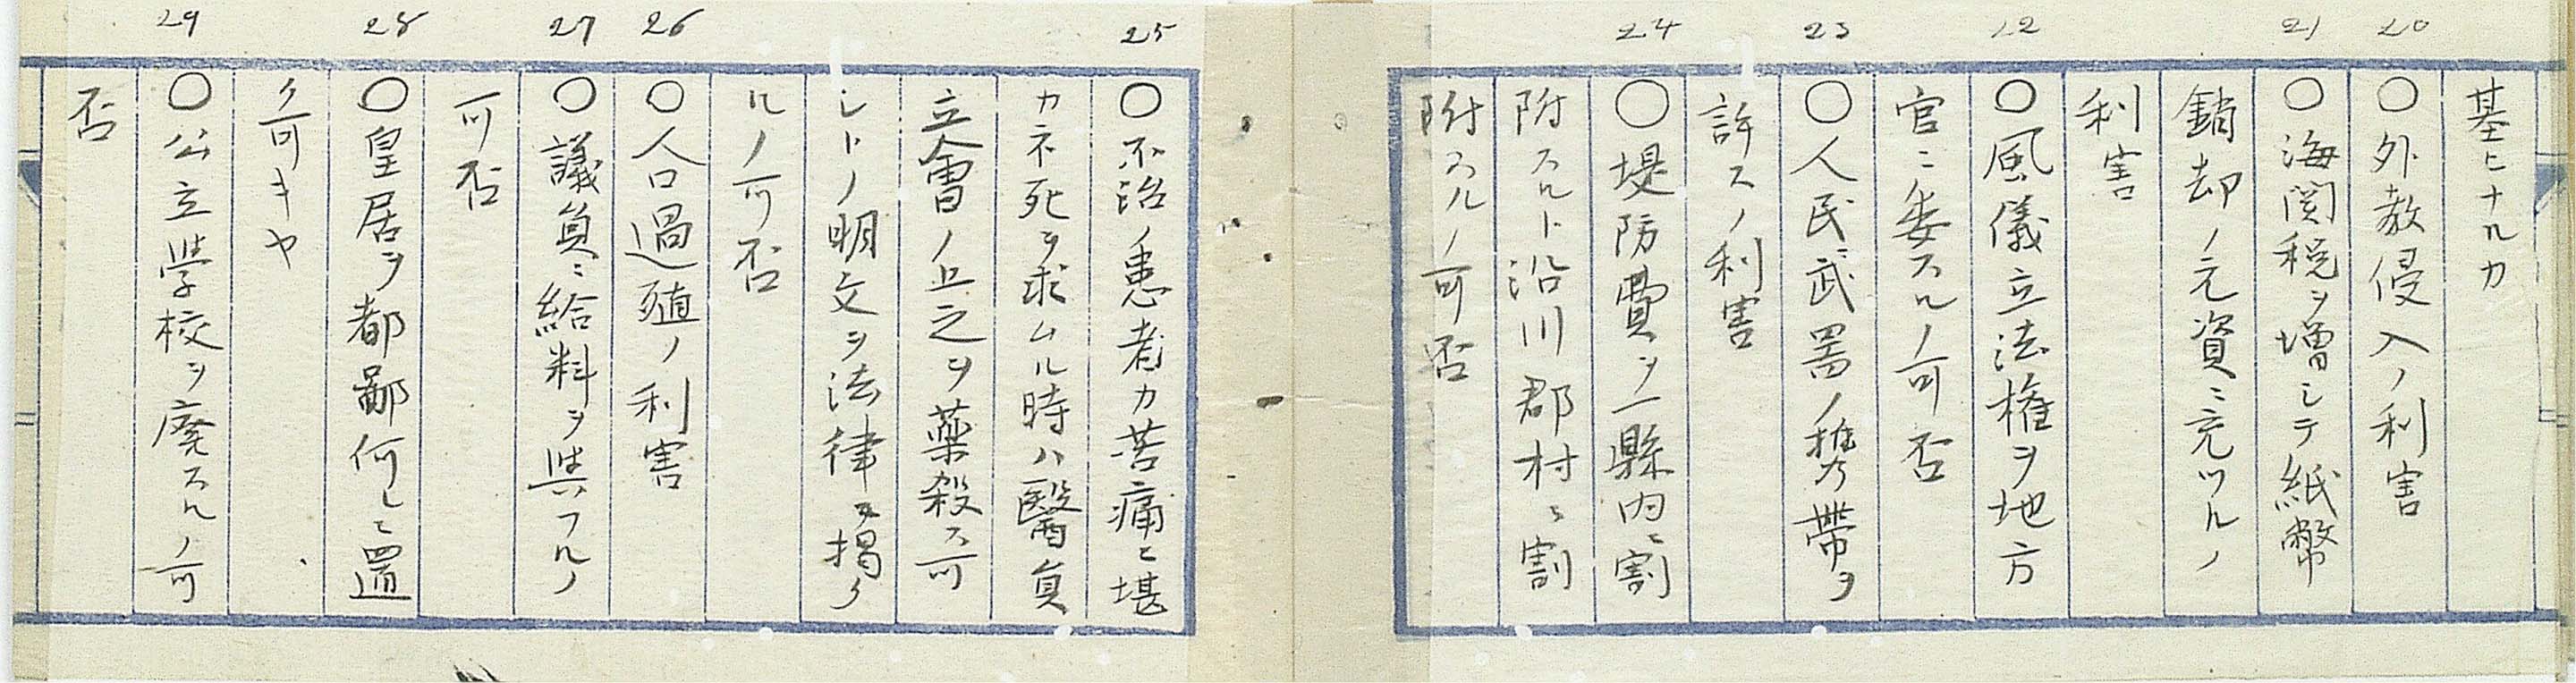 基ヒナルカ
20
〇外教侵入ノ利害
21
〇海関税ヲ増シテ紙幣
銷却ノ元資ニ充ツルノ
利害
22
〇風儀立法権ヲ地方
官ニ委スルノ可否
23
〇人民武器ノ携帯ヲ
許スノ利害
24
〇堤防費ヲ一縣内ニ割
附スルト沿川郡村ニ割
附スルノ可否
25
〇不治ノ患者カ苦痛ニ堪
カネ死ヲ求ムル時ハ醫員
立會ノ上之ヲ薬殺ス可
シトノ明文ヲ法律ニ掲ク
ルノ可否
26
〇人口過殖ノ利害
27
〇議員ニ給料ヲ與フルノ
可否
28
〇皇居ヲ都鄙何レニ置
ク可キヤ
29
〇公立学校ヲ廃スルノ可
否